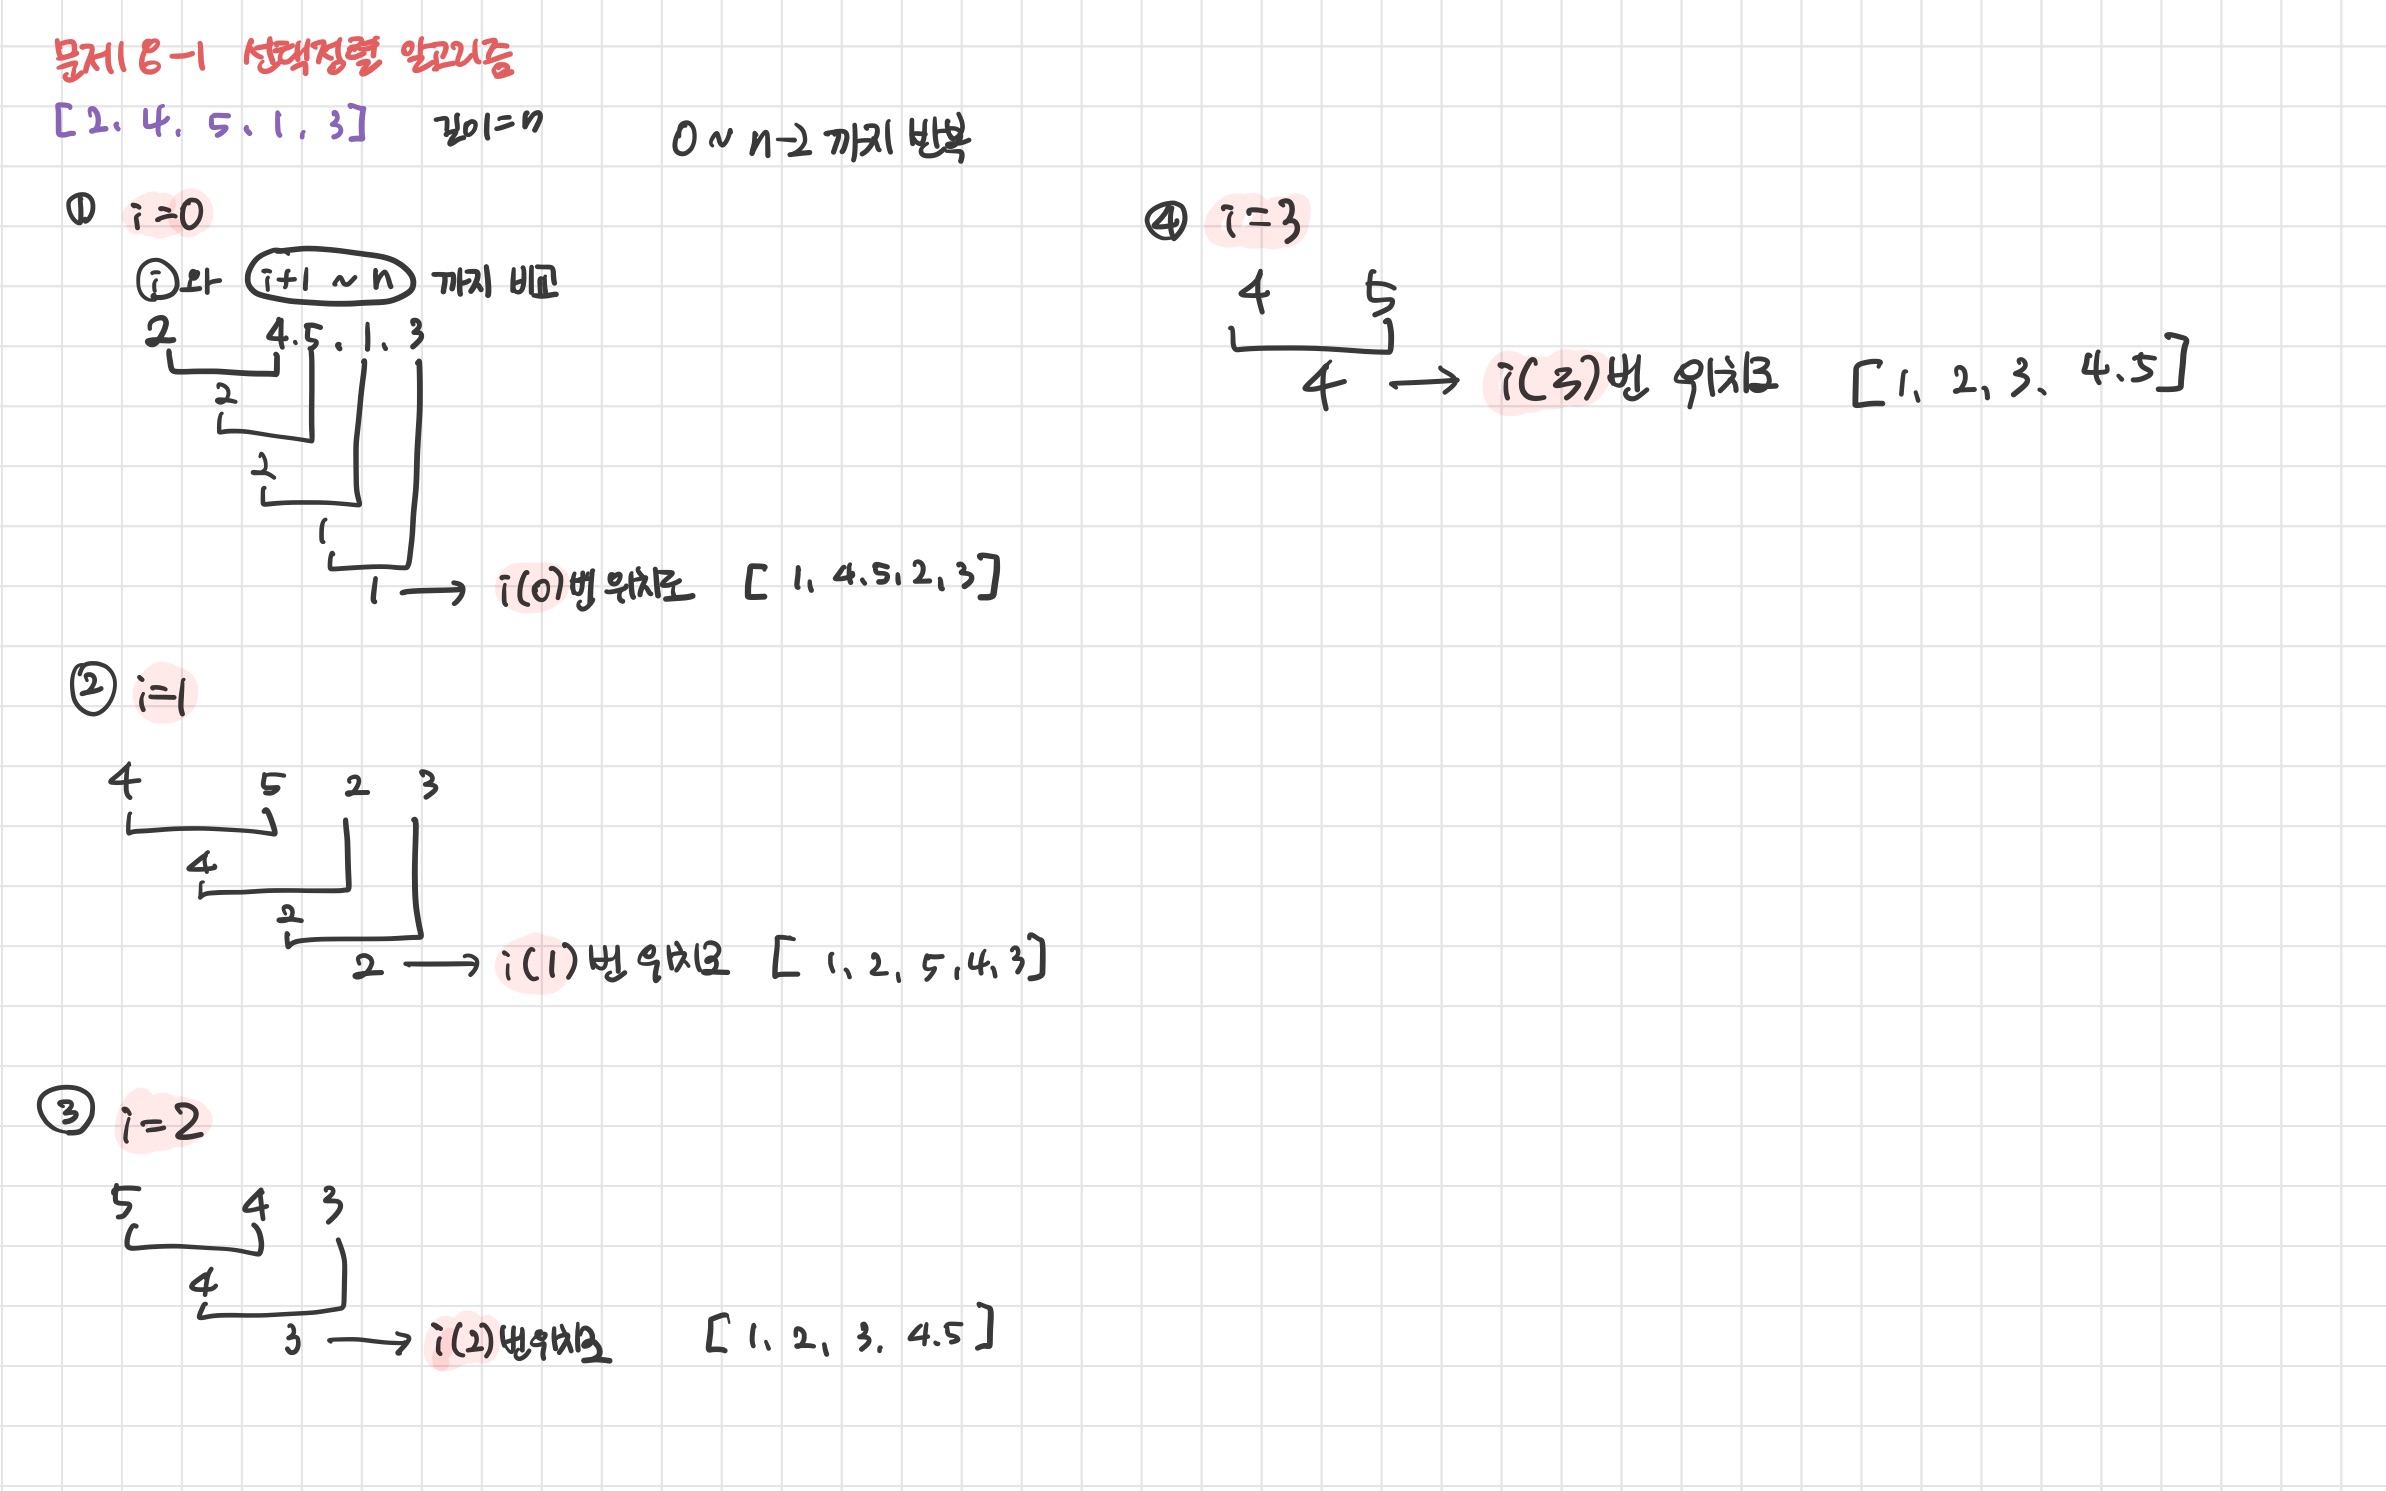 문제 8-1 선택정렬 알고리즘
[2, 4, 5, 1, 3] 길이=n 0 ~ n-2 까지 반복
① i=0
i 와 i+1 ~ n 까지 비교
2 4. 5. 1. 3
2
2
1
1 → i(0)번 위치로 [1, 4. 5. 2, 3]
② i=1
4 5 2 3
4
2
2 → i(1)번 위치로 [1, 2, 5, 4, 3]
③ i=2
5 4 3
4
3 → i(2)번 위치로 [1, 2, 3, 4.5]
④ i=3
4 5
4 → i(3)번 위치로 [1, 2, 3, 4.5]